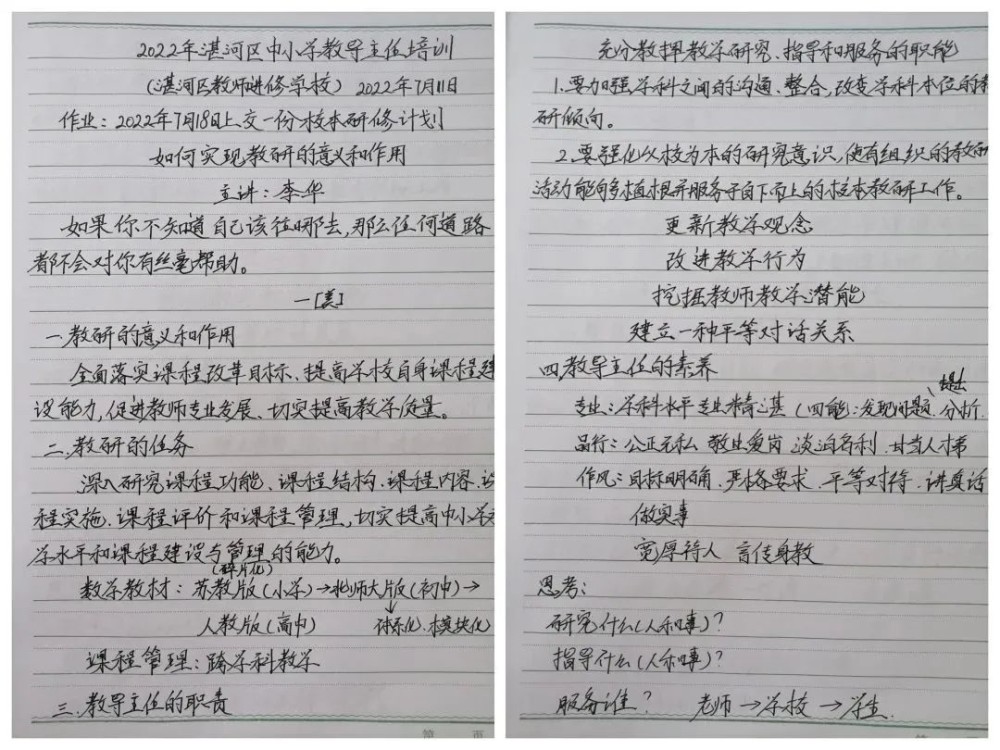 2022年湛河区中小学教导主任培训
(湛河区教师进修学校) 2022年7月11日
作业：2022年7月18日上交一份校本研修计划
如何实现教研的意义和作用
主讲：李华
如果你不知道自己该往哪去，那么任何道路
都不会对你有丝毫帮助。
一[美]
一.教研的意义和作用
全面落实课程改革目标、提高学校自身课程建
设能力，促进教师专业发展、切实提高教学质量。
二.教研的任务
深入研究课程功能、课程结构.课程内容.课
程实施.课程评价和课程管理，切实提高中小学
学水平和课程建设与管理的能力。
(碎片化)
数学教材：苏教版(小学)→北师大版(初中)→
人教版(高中) 体系化.模块化
课程管理：跨学科教学
三.教导主任的职责
充分发挥教学研究、指导和服务的职能
1.要加强学科之间的沟通、整合，改变学科本位的教
研倾向。
2.要强化以校为本的研究意识，使有组织的教研
活动能够植根并服务于自下而上的校本教研工作。
更新教学观念
改进教学行为
挖掘教师教学潜能
建立一种平等对话关系
四.教导主任的素养
提出
专业：学科水平 专业精湛 (四能：发现问题、分析
品行：公正无私 敬业爱岗 淡泊名利.甘当人梯
作风：目标明确.严格要求.平等对待.讲真话
做实事
宽厚待人 言传身教
思考：
研究什么(人和事)？
指导什么(人和事)？
服务谁？ 老师→学校→学生.